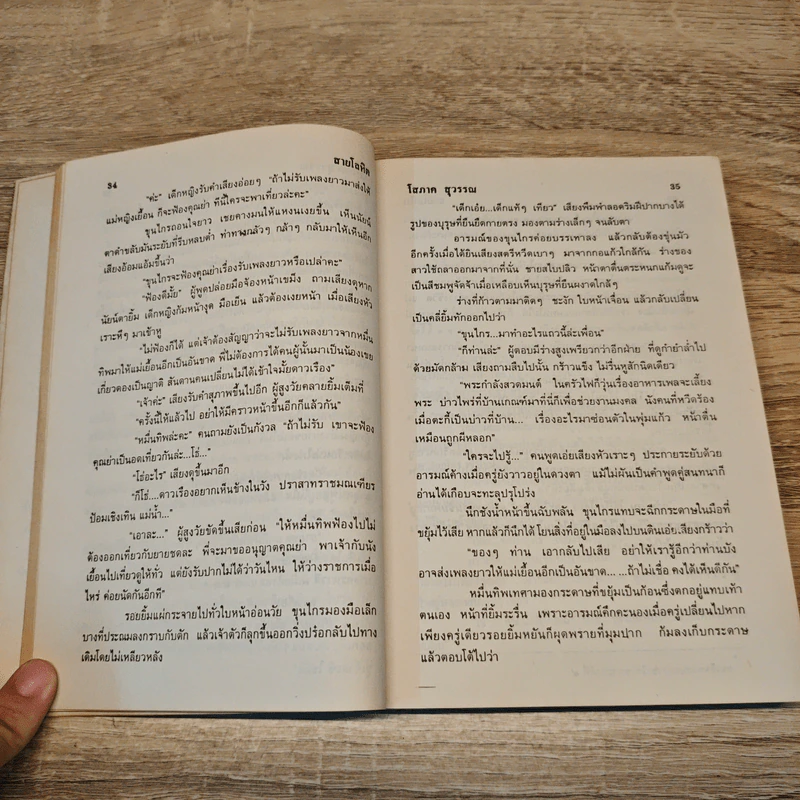 34
สายโลหิต
"ค่ะ" เด็กหญิงรับคำเสียงอ่อยๆ "ถ้าไม่รับเพลงยาวมาส่งให้
แม่หญิงเยื้อน ก็จะฟ้องคุณย่า ทีนี้ใครจะพาเที่ยวล่ะคะ"
ขุนไกรถอนใจยาว เชยคางมนให้แหงนเงยขึ้น เห็นนัยน์
ตาดำขลับมันระยับที่รีบหลบต่ำ ท่าทางกลัวๆ กล้าๆ กลับมาให้เห็นอีก
เสียงอ้อมแอ้มขึ้นว่า
"ขุนไกรจะฟ้องคุณย่าเรื่องรับเพลงยาวหรือเปล่าคะ"
"ฟ้องดีมั้ย" ผู้พูดปล่อยมือจ้องหน้าเขม็ง ถามเสียงดุหาก
นัยน์ตายิ้ม เด็กหญิงก้มหน้างุด มือเย็น แล้วต้องเงยหน้า เมื่อเสียงหัว
เราะหึๆ มาเข้าหู
"ไม่ฟ้องก็ได้ แต่เจ้าต้องสัญญาว่าจะไม่รับเพลงยาวจากหมื่น
ทิพมาให้แม่เยื้อนอีกเป็นอันขาด พี่ไม่ต้องการได้คนผู้นั้นมาเป็นน้องเขย
เกี่ยวดองเป็นญาติ สันดานคนเปลี่ยนไม่ได้เข้าใจมั้ยดาวเรือง"
"เจ้าค่ะ" เสียงรับคำสุภาพขึ้นไปอีก ผู้สูงวัยคลายยิ้มเต็มที่
"ครั้งนี้ให้แล้วไป อย่าให้มีคราวหน้าขึ้นอีกก็แล้วกัน"
"หมื่นทิพล่ะคะ" คนถามยังเป็นกังวล "ถ้าไม่รับ เขาจะฟ้อง
คุณย่าเป็นอดเที่ยวกันล่ะ...โธ่..."
"โธ่อะไร" เสียงดุขึ้นมาอีก
"ก็โธ่....ดาวเรืองอยากเห็นช้างในวัง ปราสาทราชมณเฑียร
ป้อมเชิงเทิน แม่น้ำ..."
"เอาละ..." ผู้สูงวัยขัดขึ้นเสียก่อน "ให้หมื่นทิพฟ้องไปไม่
ต้องออกเที่ยวกับยายชดละ พี่จะมาขออนุญาตคุณย่า พาเจ้ากับนัง
เยื้อนไปเที่ยวดูให้ทั่ว แต่ยังรับปากไม่ได้ว่าวันไหน ให้ว่างราชการเมื่อ
ไหร่ ค่อยนัดกันอีกที"
รอยยิ้มแผ่กระจายไปทั่วใบหน้าอ่อนวัย ขุนไกรมองมือเล็ก
บางที่ประณมลงกราบกับตัก แล้วเจ้าตัวก็ลุกขึ้นออกวิ่งปร๋อกลับไปทาง
เดิมโดยไม่เหลียวหลัง
โสภาค สุวรรณ
35
"เด็กเอ๋ย...เด็กแท้ๆ เทียว" เสียงพึมพำลอดริมฝีปากบางได้
รูปของบุรุษที่ยืนยืดกายตรง มองตามร่างเล็กๆ จนลับตา
อารมณ์ของขุนไกรค่อยบรรเทาลง แล้วกลับต้องขุ่นมัว
อีกครั้งเมื่อได้ยินเสียงสตรีหวีดเบาๆ มาจากกอแก้วใกล้กัน ร่างของ
สาวใช้ถลาออกมาจากที่นั่น ชายสไบปลิว หน้าตาตื่นตระหนกแก้มดูจะ
เป็นสีชมพูจัดจ้าเมื่อเหลือบเห็นบุรุษที่ยืนผงาดใกล้ๆ
ร่างที่ก้าวตามมาติดๆ ชะงัก ใบหน้าเจื่อน แล้วกลับเปลี่ยน
เป็นคลี่ยิ้มทักออกไปว่า
"ขุนไกร...มาทำอะไรแถวนี้ล่ะเพื่อน"
"ก็ท่านล่ะ" ผู้ตอบมีร่างสูงเพรียวกว่าอีกฝ่าย ที่ดูกำยำล่ำไป
ด้วยมัดกล้าม เสียงถามสืบไปนั้น กร้าวแข็ง ไม่รื่นหูสักนิดเดียว
"พระกำลังสวดมนต์ ในครัวไพ่ก็วุ่นเรื่องอาหารเพลจะเลี้ยง
พระ บ่าวไพร่ที่บ้านเกณฑ์มาที่นี่ก็เพื่อช่วยงานมงคล นังคนที่หวีดร้อง
เมื่อตะกี้เป็นบ่าวที่บ้าน... เรื่องอะไรมาซ่อนตัวในพุ่มแก้ว หน้าตื่น
เหมือนถูกผีหลอก"
"ใครจะไปรู้..." คนพูดเอ่ยเสียงหัวเราะๆ ประกายระยับด้วย
อารมณ์ค้างเมื่อครู่ยังวาวอยู่ในดวงตา แม้ไม่ผันเป็นคำพูดคู่สนทนาก็
อ่านได้เกือบจะทะลุปรุโปร่ง
นึกชังน้ำหน้าขึ้นฉับพลัน ขุนไกรแทบจะฉีกกระดาษในมือที่
ขยุ้มไว้เสีย หากแล้วก็นึกได้ โยนสิ่งที่อยู่ในมือลงไปบนดินเอ่ย.สียงกร้าวว่า
"ของๆ ท่าน เอากลับไปเสีย อย่าให้เรารู้อีกว่าท่านบัง
อาจส่งเพลงยาวให้แม่เยื้อนอีกเป็นอันขาด... ...ถ้าไม่เชื่อ คงได้เห็นดีกัน"
หมื่นทิพเทศามองกระดาษที่ขยุ้มเป็นก้อนซึ่งตกอยู่แทบเท้า
ตนเอง หน้าที่ยิ้มระรื่น เพราะอารมณ์คึกคะนองเมื่อครู่เปลี่ยนไปหาก
เพียงครู่เดียวรอยยิ้มหยันก็ผุดพรายที่มุมปาก ก้มลงเก็บกระดาษ
แล้วตอบโต้ไปว่า